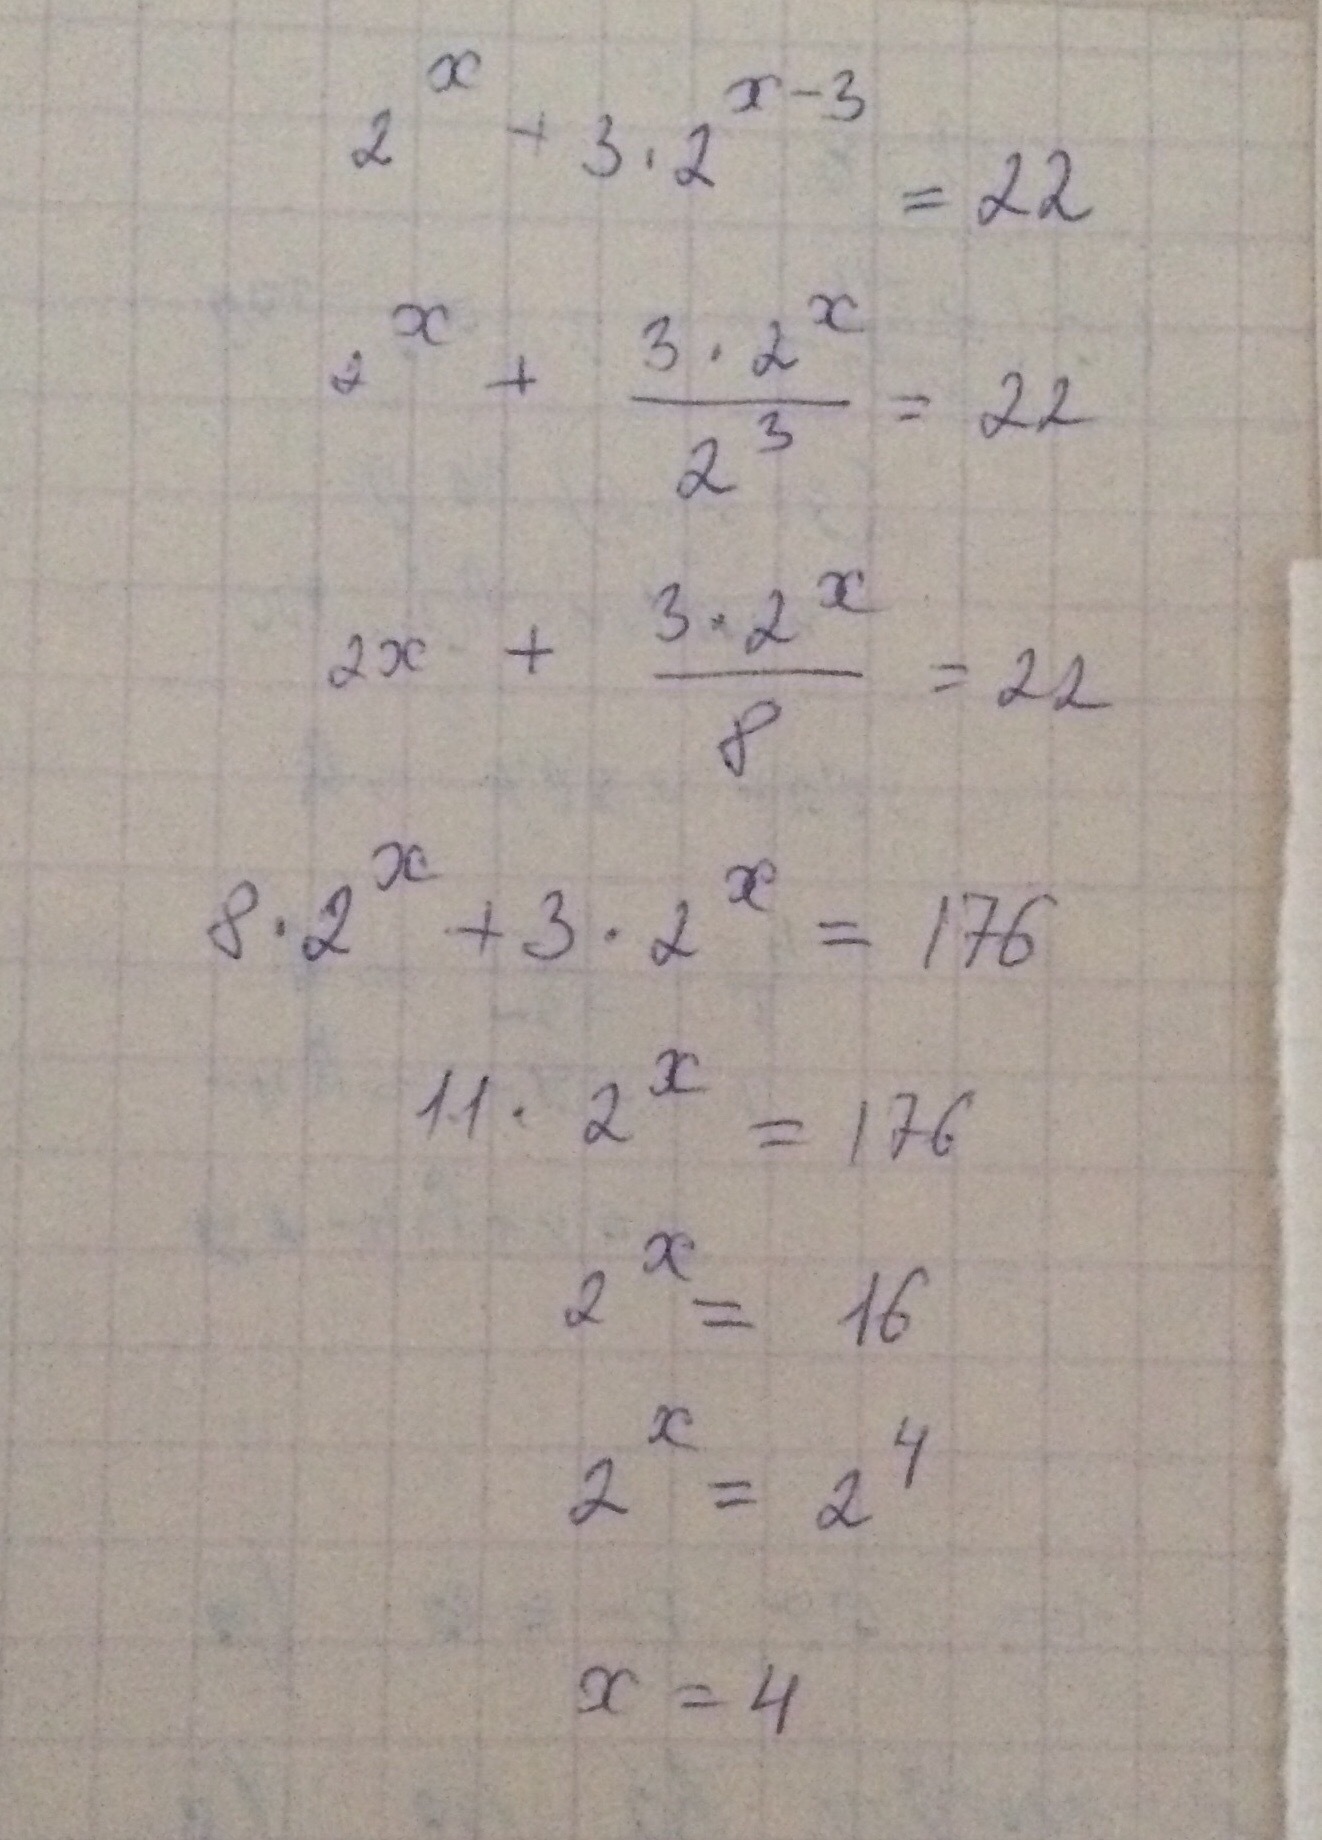 2^x + 3·2^{x-3} = 22
2^x + \frac{3·2^x}{2^3} = 22
2x + \frac{3·2^x}{8} = 22
8·2^x + 3·2^x = 176
11·2^x = 176
2^x = 16
2^x = 2^4
x = 4